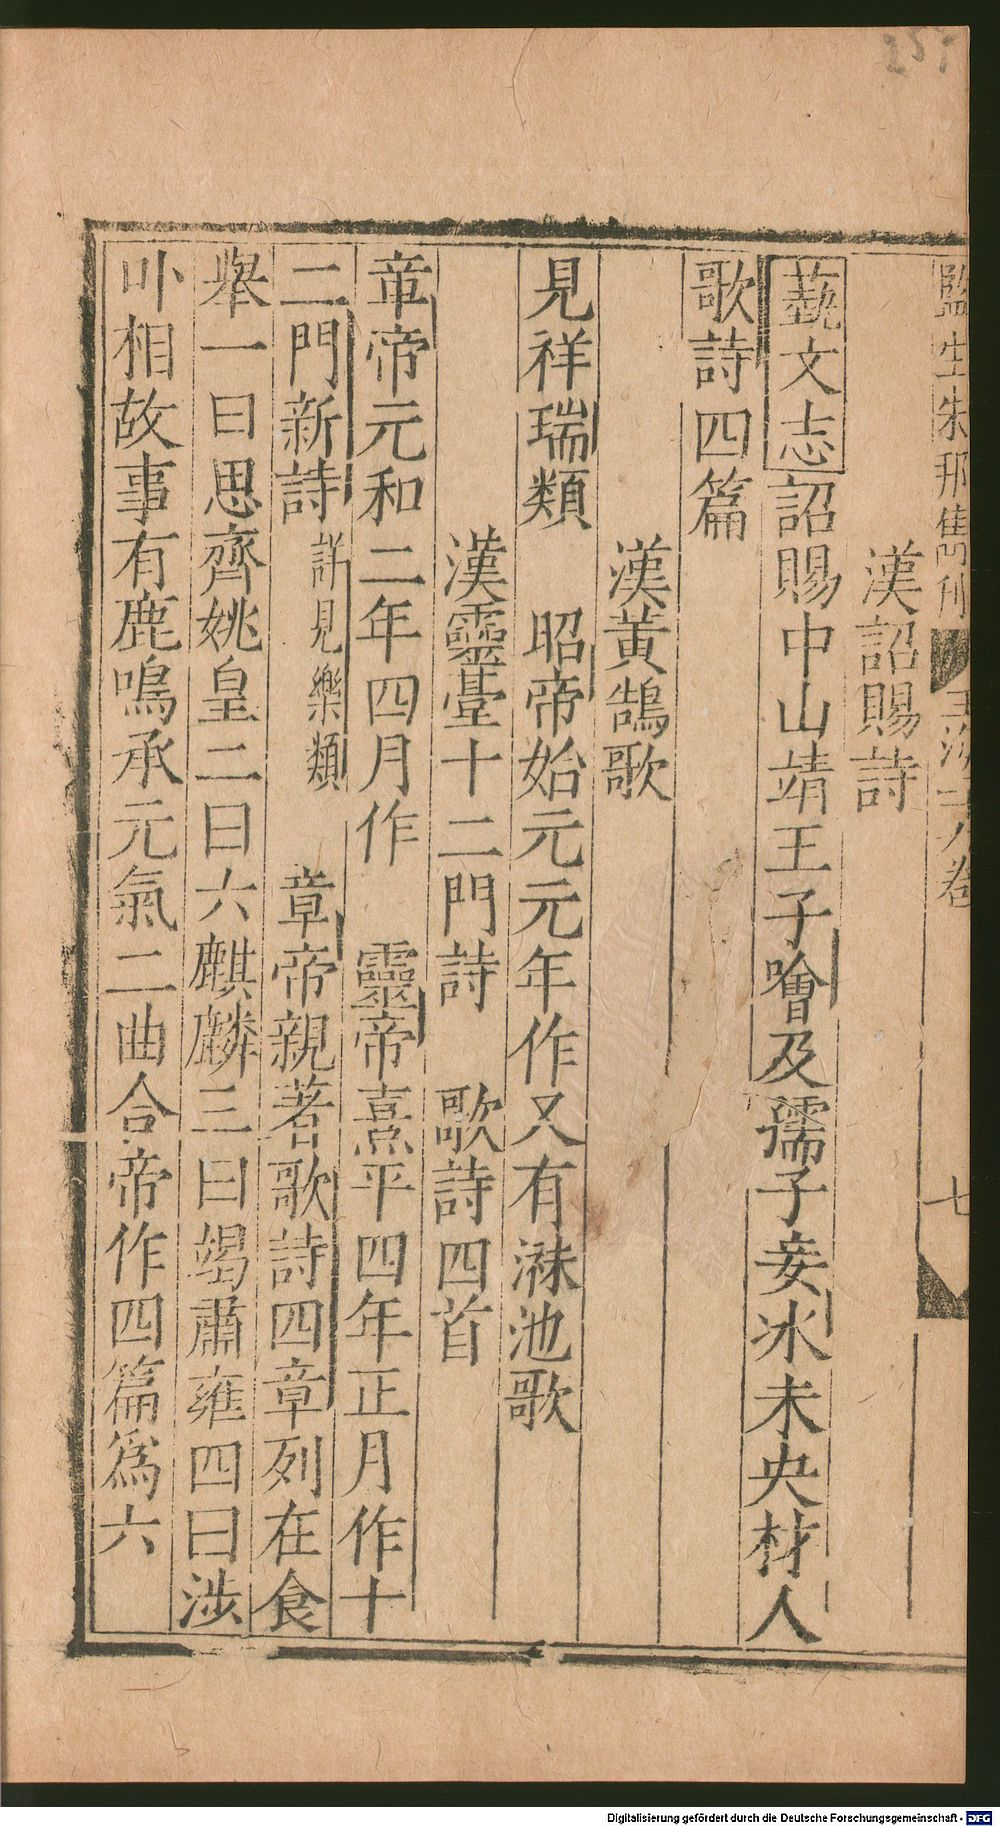 監生朱邦雋刊 玉海二八卷 七
漢詔賜詩
藝文志詔賜中山靖王子噲及孺子妾冰未央材人
歌詩四篇
漢黃鵠歌
見祥瑞類 昭帝始元元年作又有滌池歌
漢靈臺十二門詩 歌詩四首
章帝元和二年四月作 靈帝熹平四年正月作十
二門新詩詳見樂類 章帝親著歌詩四章列在食
舉一曰思齊姚皇二曰六麒麟三曰竭肅雍四曰涉
叶相故事有鹿鳴承元氣二曲合帝作四篇爲六
Digitalisierung gefördert durch die Deutsche Forschungsgemeinschaft - DFG